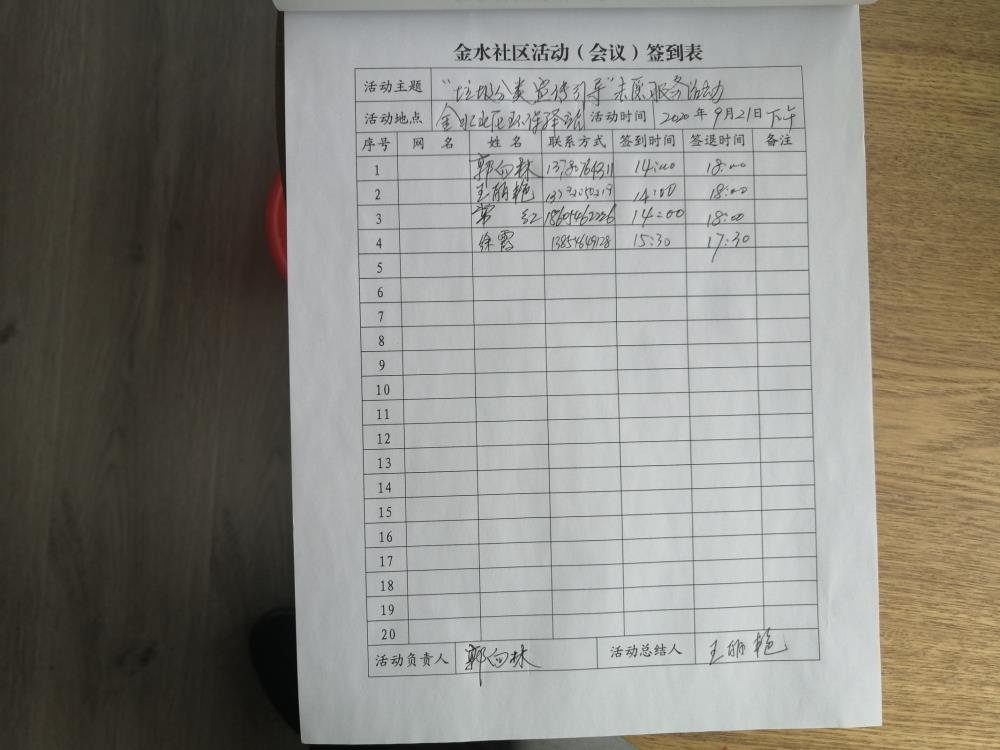 金水社区活动（会议）签到表
活动主题 "垃圾分类宣传引导"志愿服务活动
活动地点 金水社区环保驿站 活动时间 2020年9月21日下午
序号 网名 姓名 联系方式 签到时间 签退时间 备注
1 郭向林 14:00 18:00
2 王丽艳 14:00 18:00
3 常红 18605462226 14:00 18:00
4 徐霞 13854649128 15:30 17:30
5
6
7
8
9
10
11
12
13
14
15
16
17
18
19
20
活动负责人 郭向林 活动总结人 王丽艳